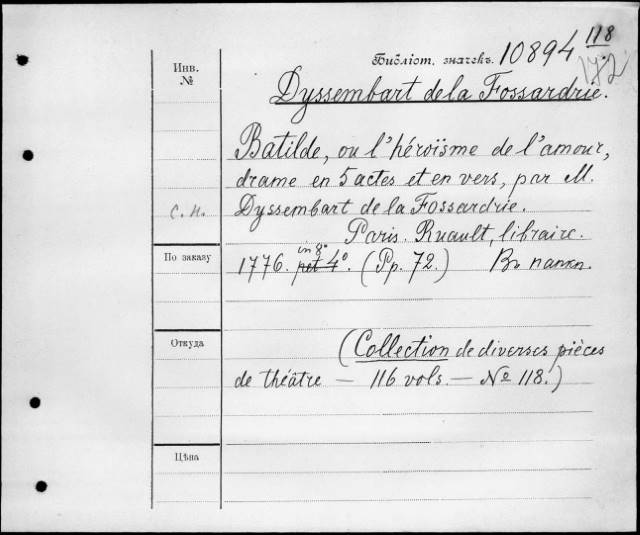 Библіот. значекъ. 10894 118
172
Инв.
№
Dyssembart de la Fossardrie.
Batilde, ou l'héroïsme de l'amour,
drame en 5 actes et en vers, par M.
с. н. Dyssembart de la Fossardrie.
Paris. Ruault, libraire.
in 8°
По заказу
1776. pet 4°. (Pp. 72.) Въ папкѣ.
Откуда
(Collection de diverses pièces
de théâtre — 116 vols. — № 118.)
Цѣна